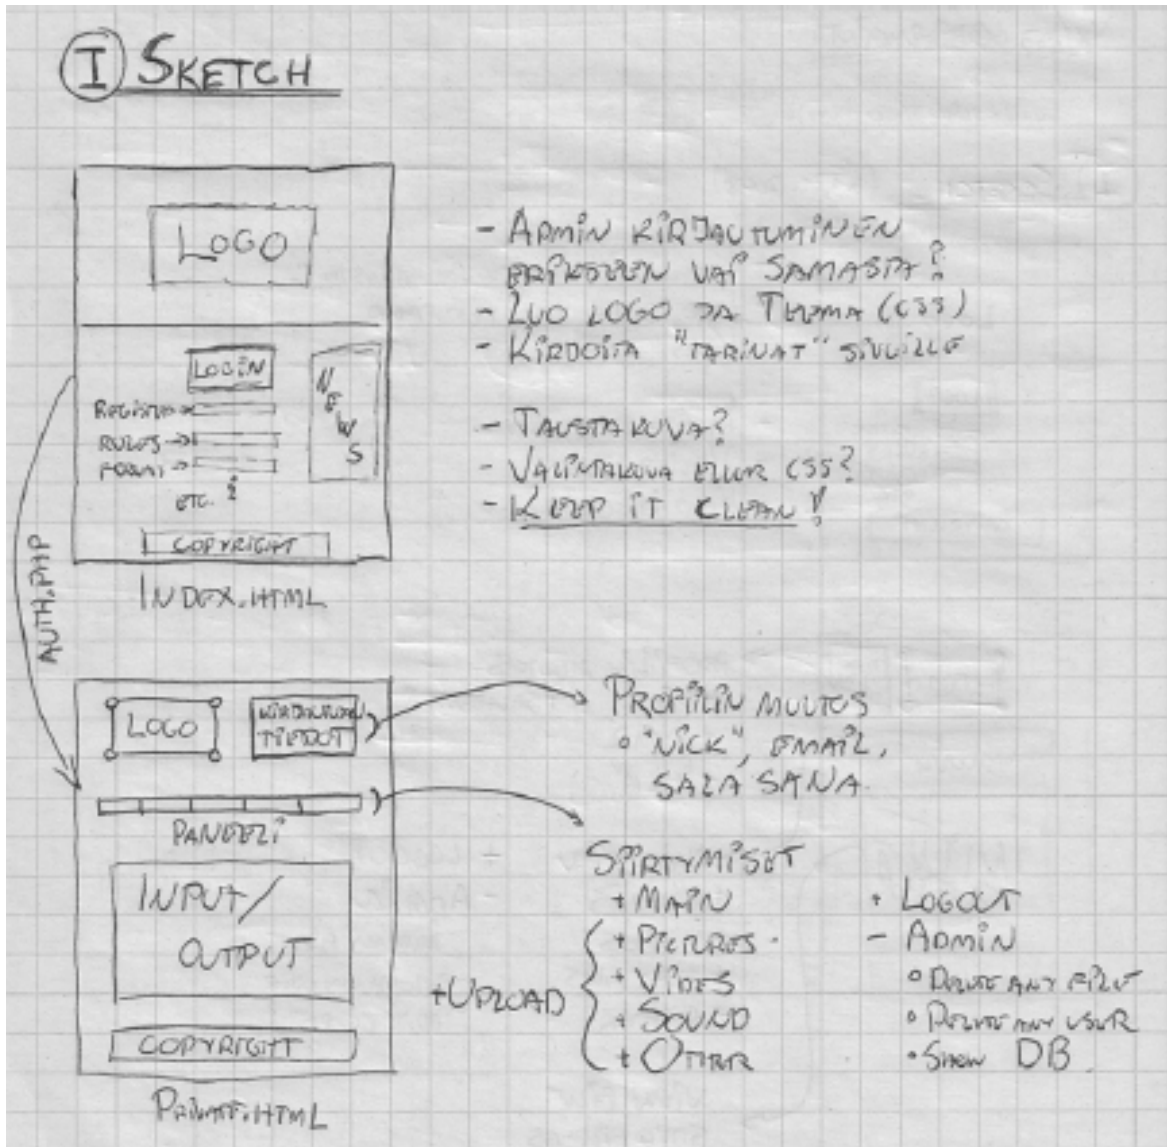 I SKETCH
LOGO
LOGIN
NEWS
REGISTER
RULES
FORMI
ETC.
COPYRIGHT
INDEX.HTML
- ADMIN KIRJAUTUMINEN
ERIKSEEN VAI SAMASTA?
- LUO LOGO JA TEEMA (CSS)
- KIRJOITA "TARINAT" SIVUILLE
- TAUSTAKUVA?
- VALINTAKUVA ELLER CSS?
- KEEP IT CLEAN!
AUTH.PHP
LOGO
TIEDOT
PANEELI
INPUT/
OUTPUT
COPYRIGHT
PRIVATE.HTML
PROFIILIN MUUTOS
"NICK", EMAIL,
SALASANA.
SIIRTYMISET
+ MAIN
+ PICTURES
+ VIDEOS
+ SOUND
+ OTHER
+UPLOAD
+ LOGOUT
- ADMIN
DELETE ANY FILE
DELETE ANY USER
SHOW DB